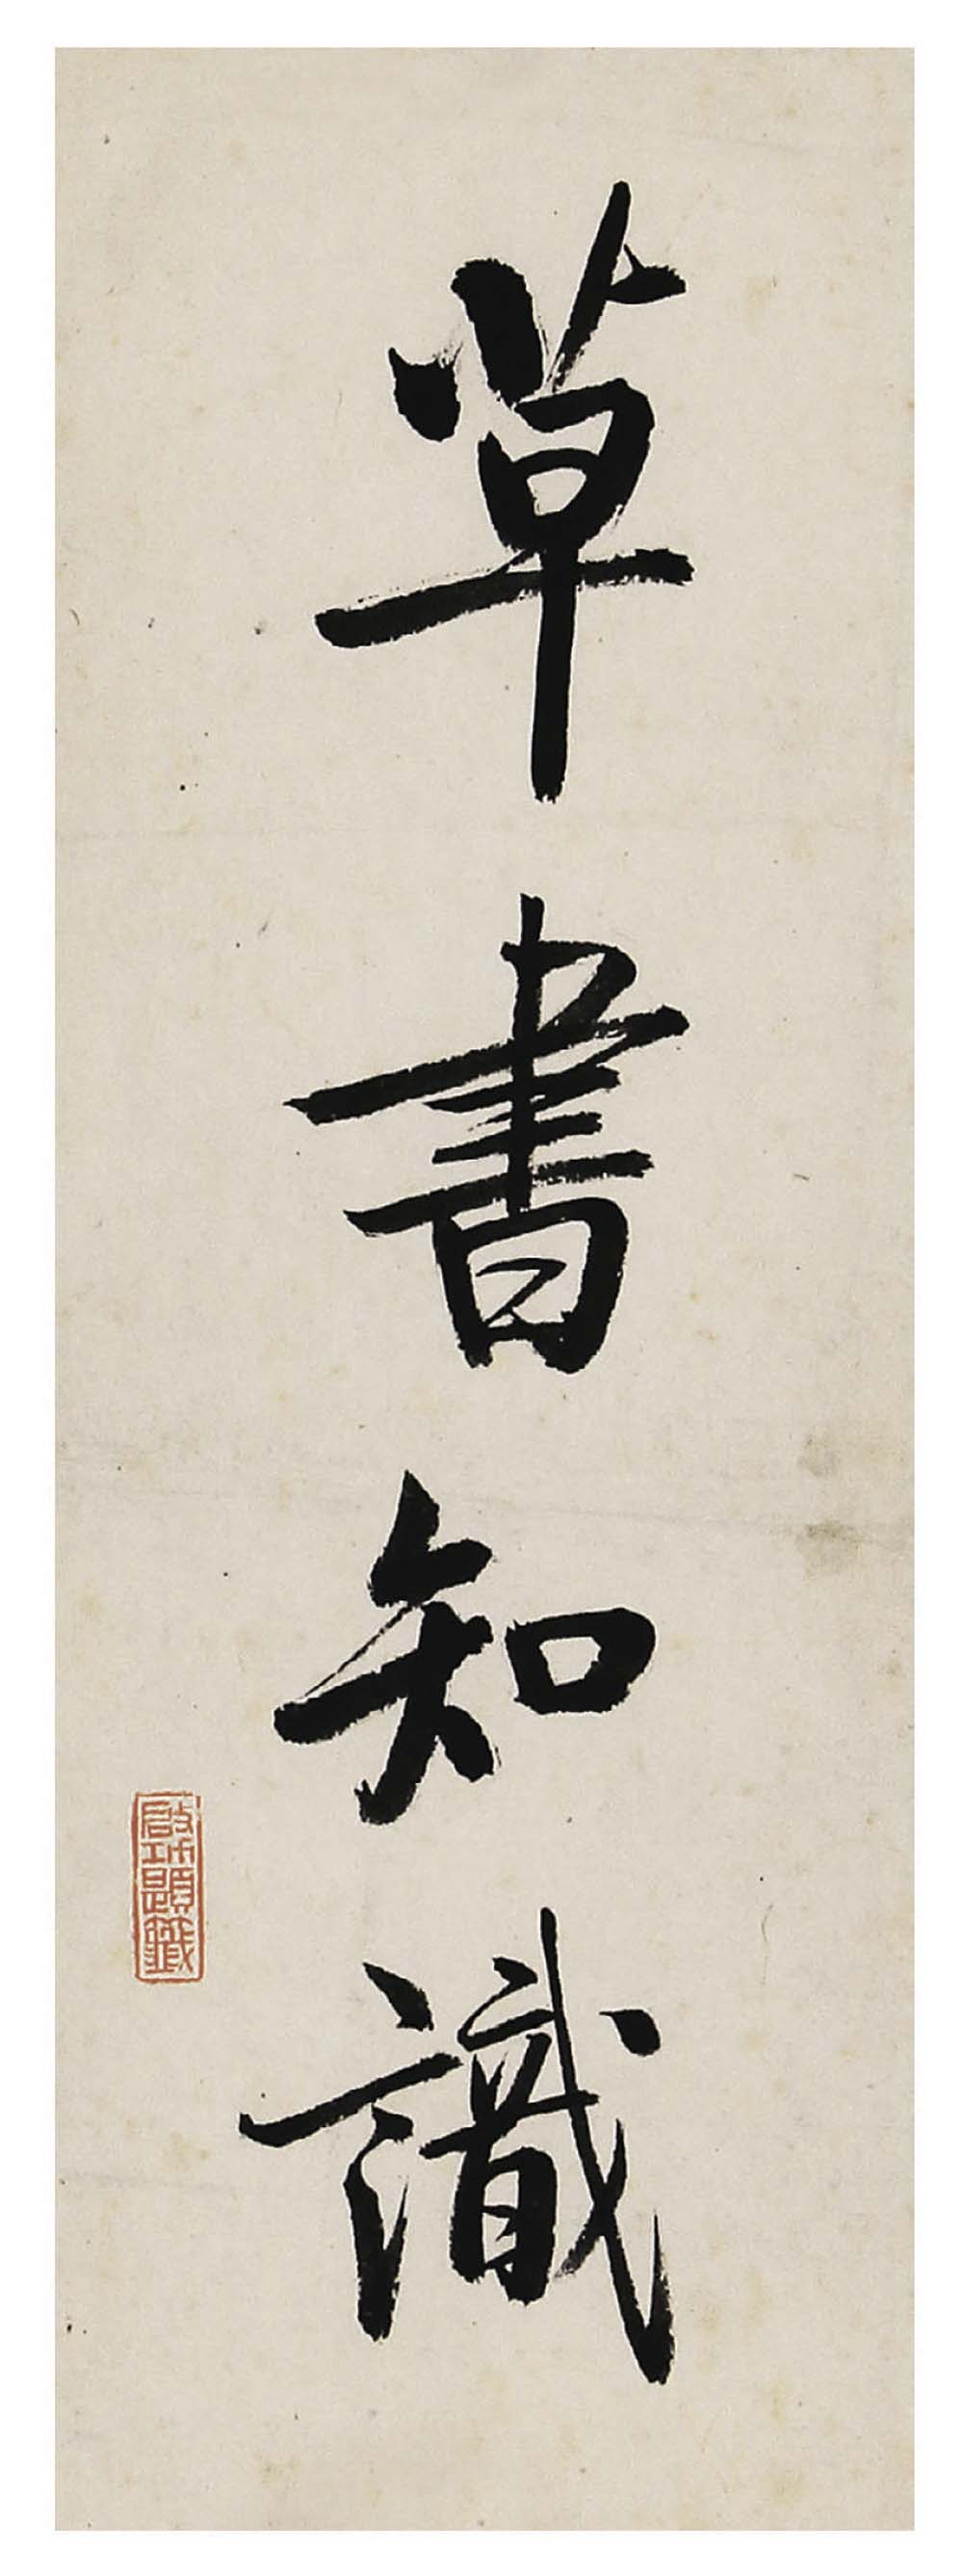 草書知識
啟功題籤